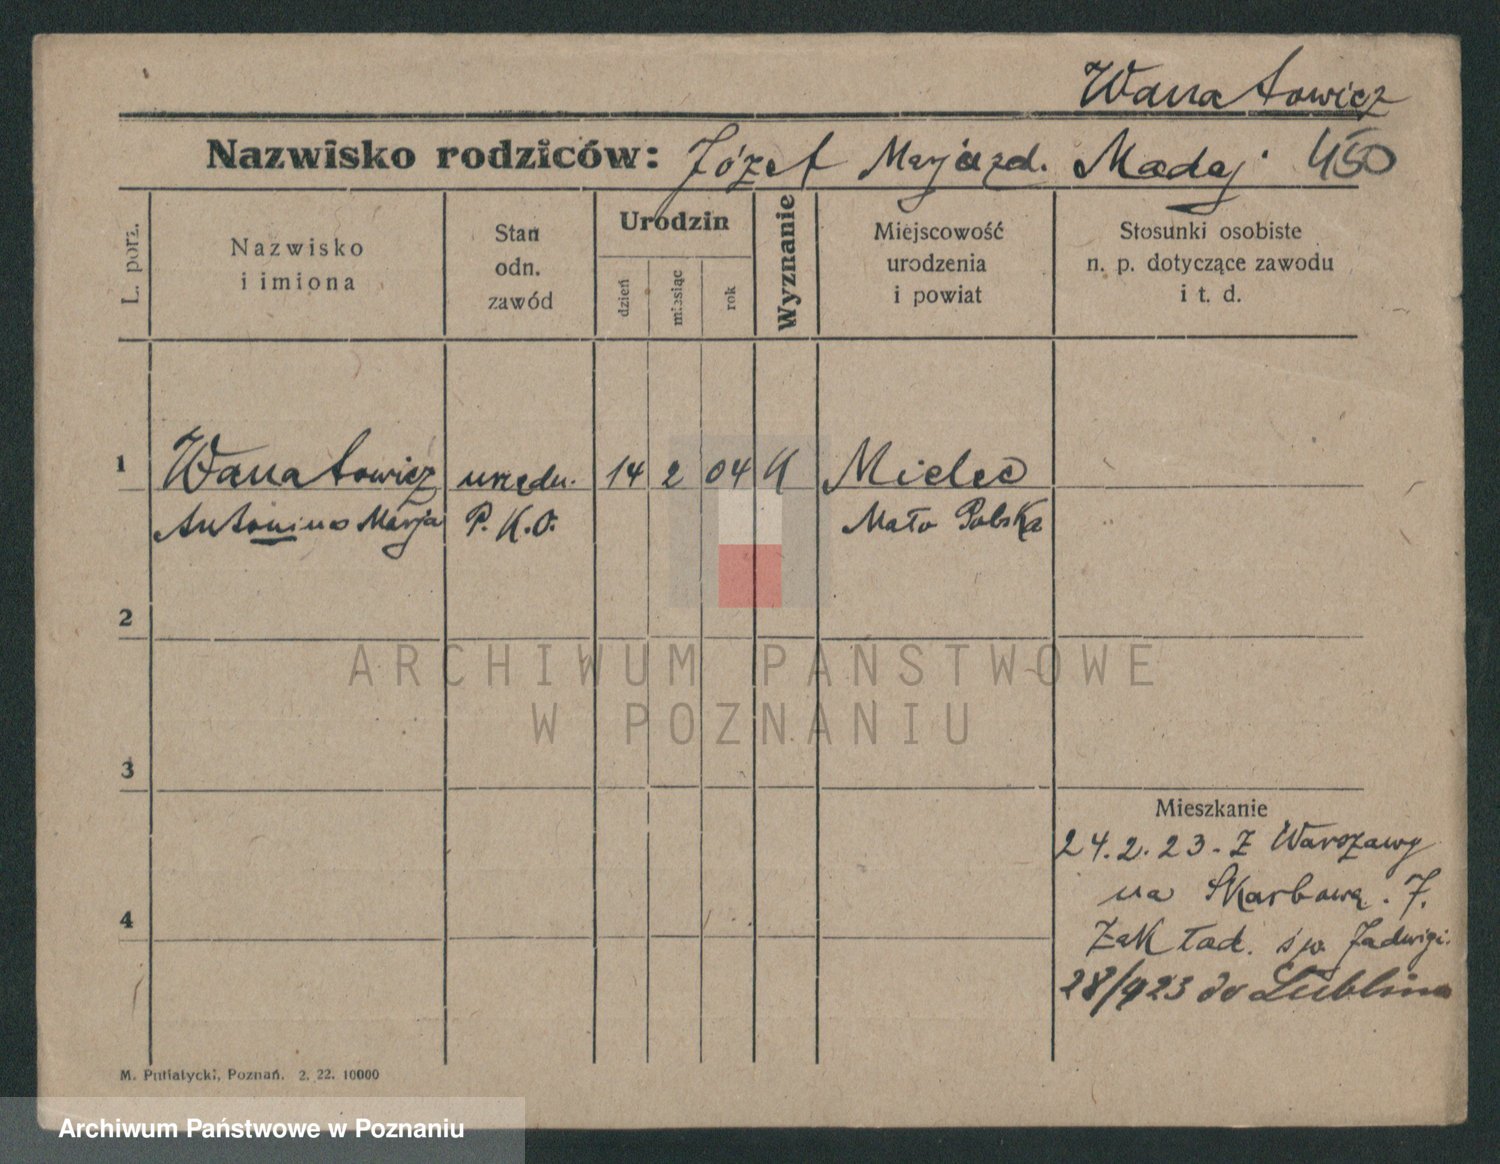 Wanatowicz
Nazwisko rodziców: Józef Marja zd. Madej 450
L. porz.
Nazwisko
i imiona
Stan
odn.
zawód
Urodzin
dzień
miesiąc
rok
Wyznanie
Miejscowość
urodzenia
i powiat
Stosunki osobiste
n. p. dotyczące zawodu
i t. d.
1 Wanatowicz urzędn. 14 2 04 K Mielec
Antonina Marja P. K. O. Mało Polska
2
3
4
Mieszkanie
24.2.23. z Warszawy
na Skarbową. 7.
Zakład. św. Jadwigi.
28/9 23 do Lublina
M. Putiatycki, Poznań. 2. 22. 10000
ARCHIWUM PAŃSTWOWE
W POZNANIU
Archiwum Państwowe w Poznaniu